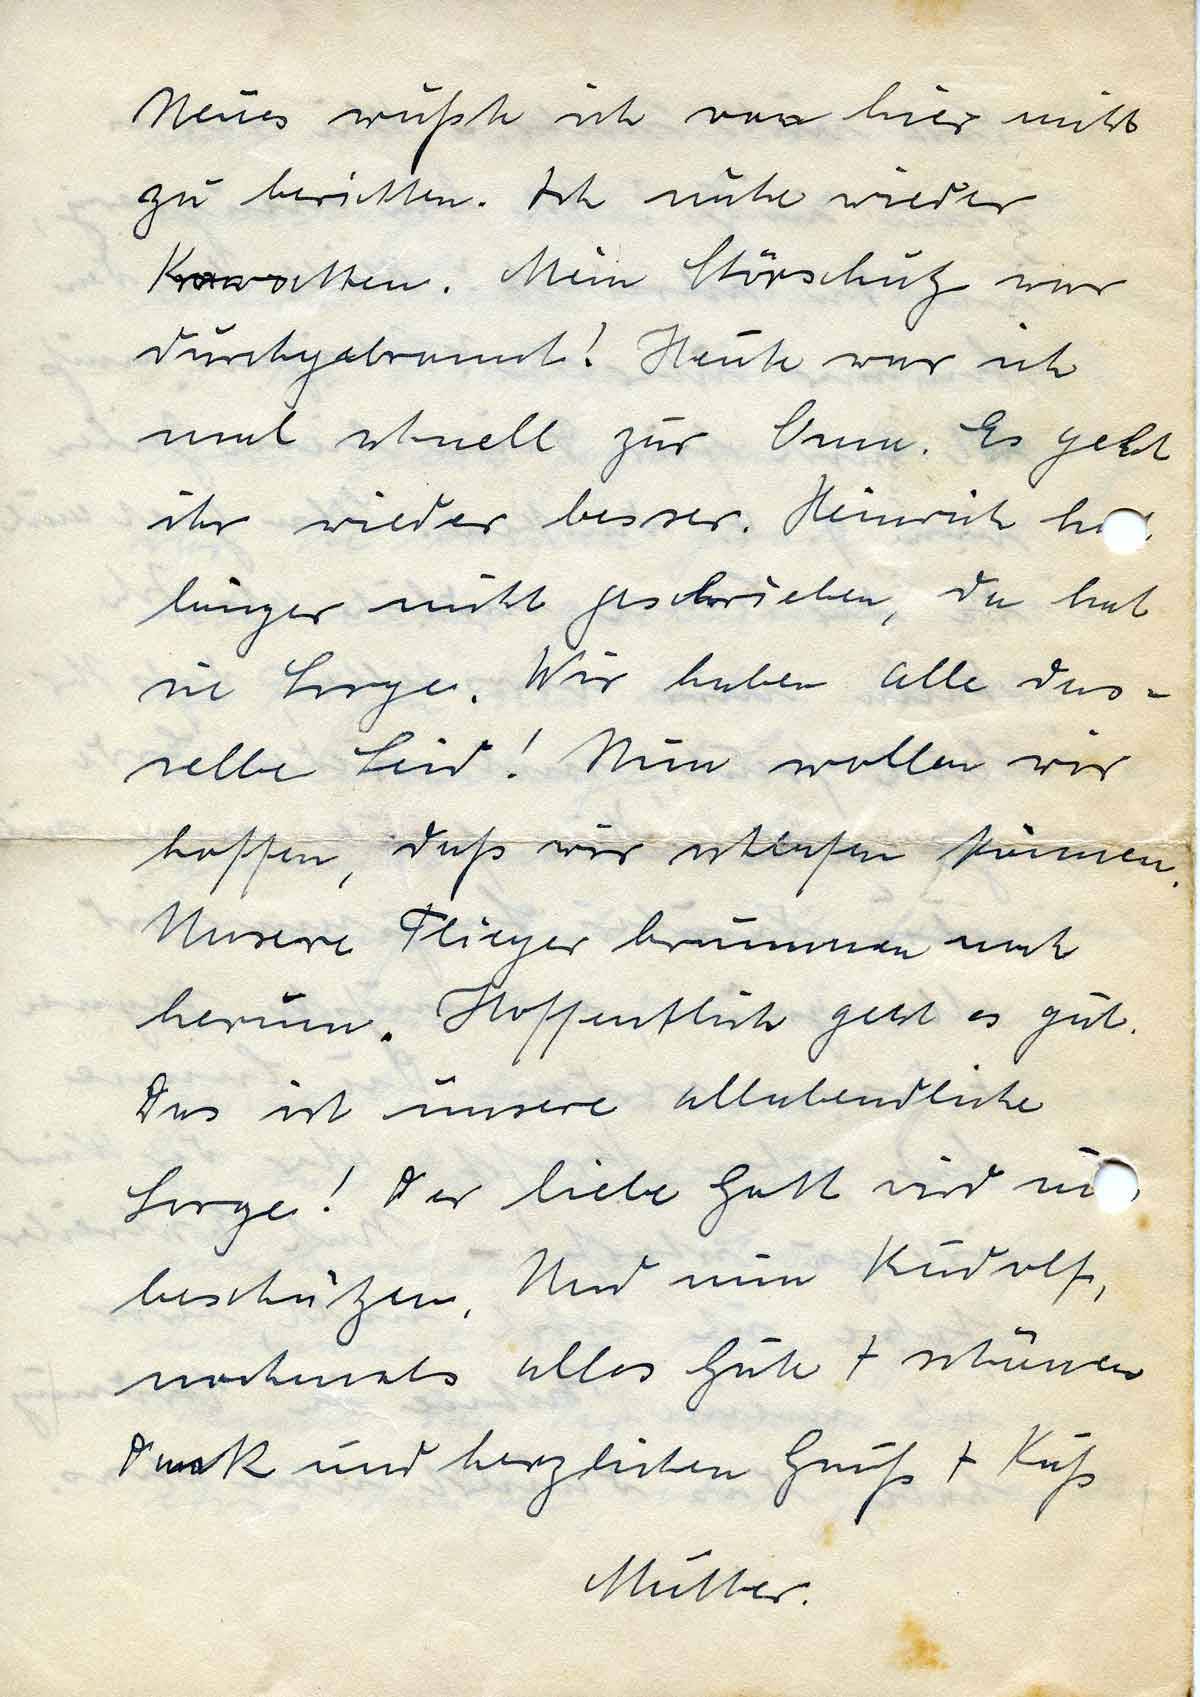 Neues wüßte ich von hier nicht
zu berichten. Ich nähe wieder
Krawatten. Mein Störschutz war
durchgebrannt! Heute war ich
mal schnell zur Oma. Es geht
ihr wieder besser. Heinrich hat
länger nicht geschrieben, da hat
sie Sorge. Wir haben alle das-
selbe Leid! Nun wollen wir
hoffen, daß wir schlafen können.
Unsere Flieger brummen noch
herum. Hoffentlich geht es gut.
Das ist unsere allabendliche
Sorge! Der liebe Gott wird uns
beschützen. Und nun Rudolf,
nochmals alles Gute + schönen
Dank und herzlichen Gruß + Kuß
Mutter.